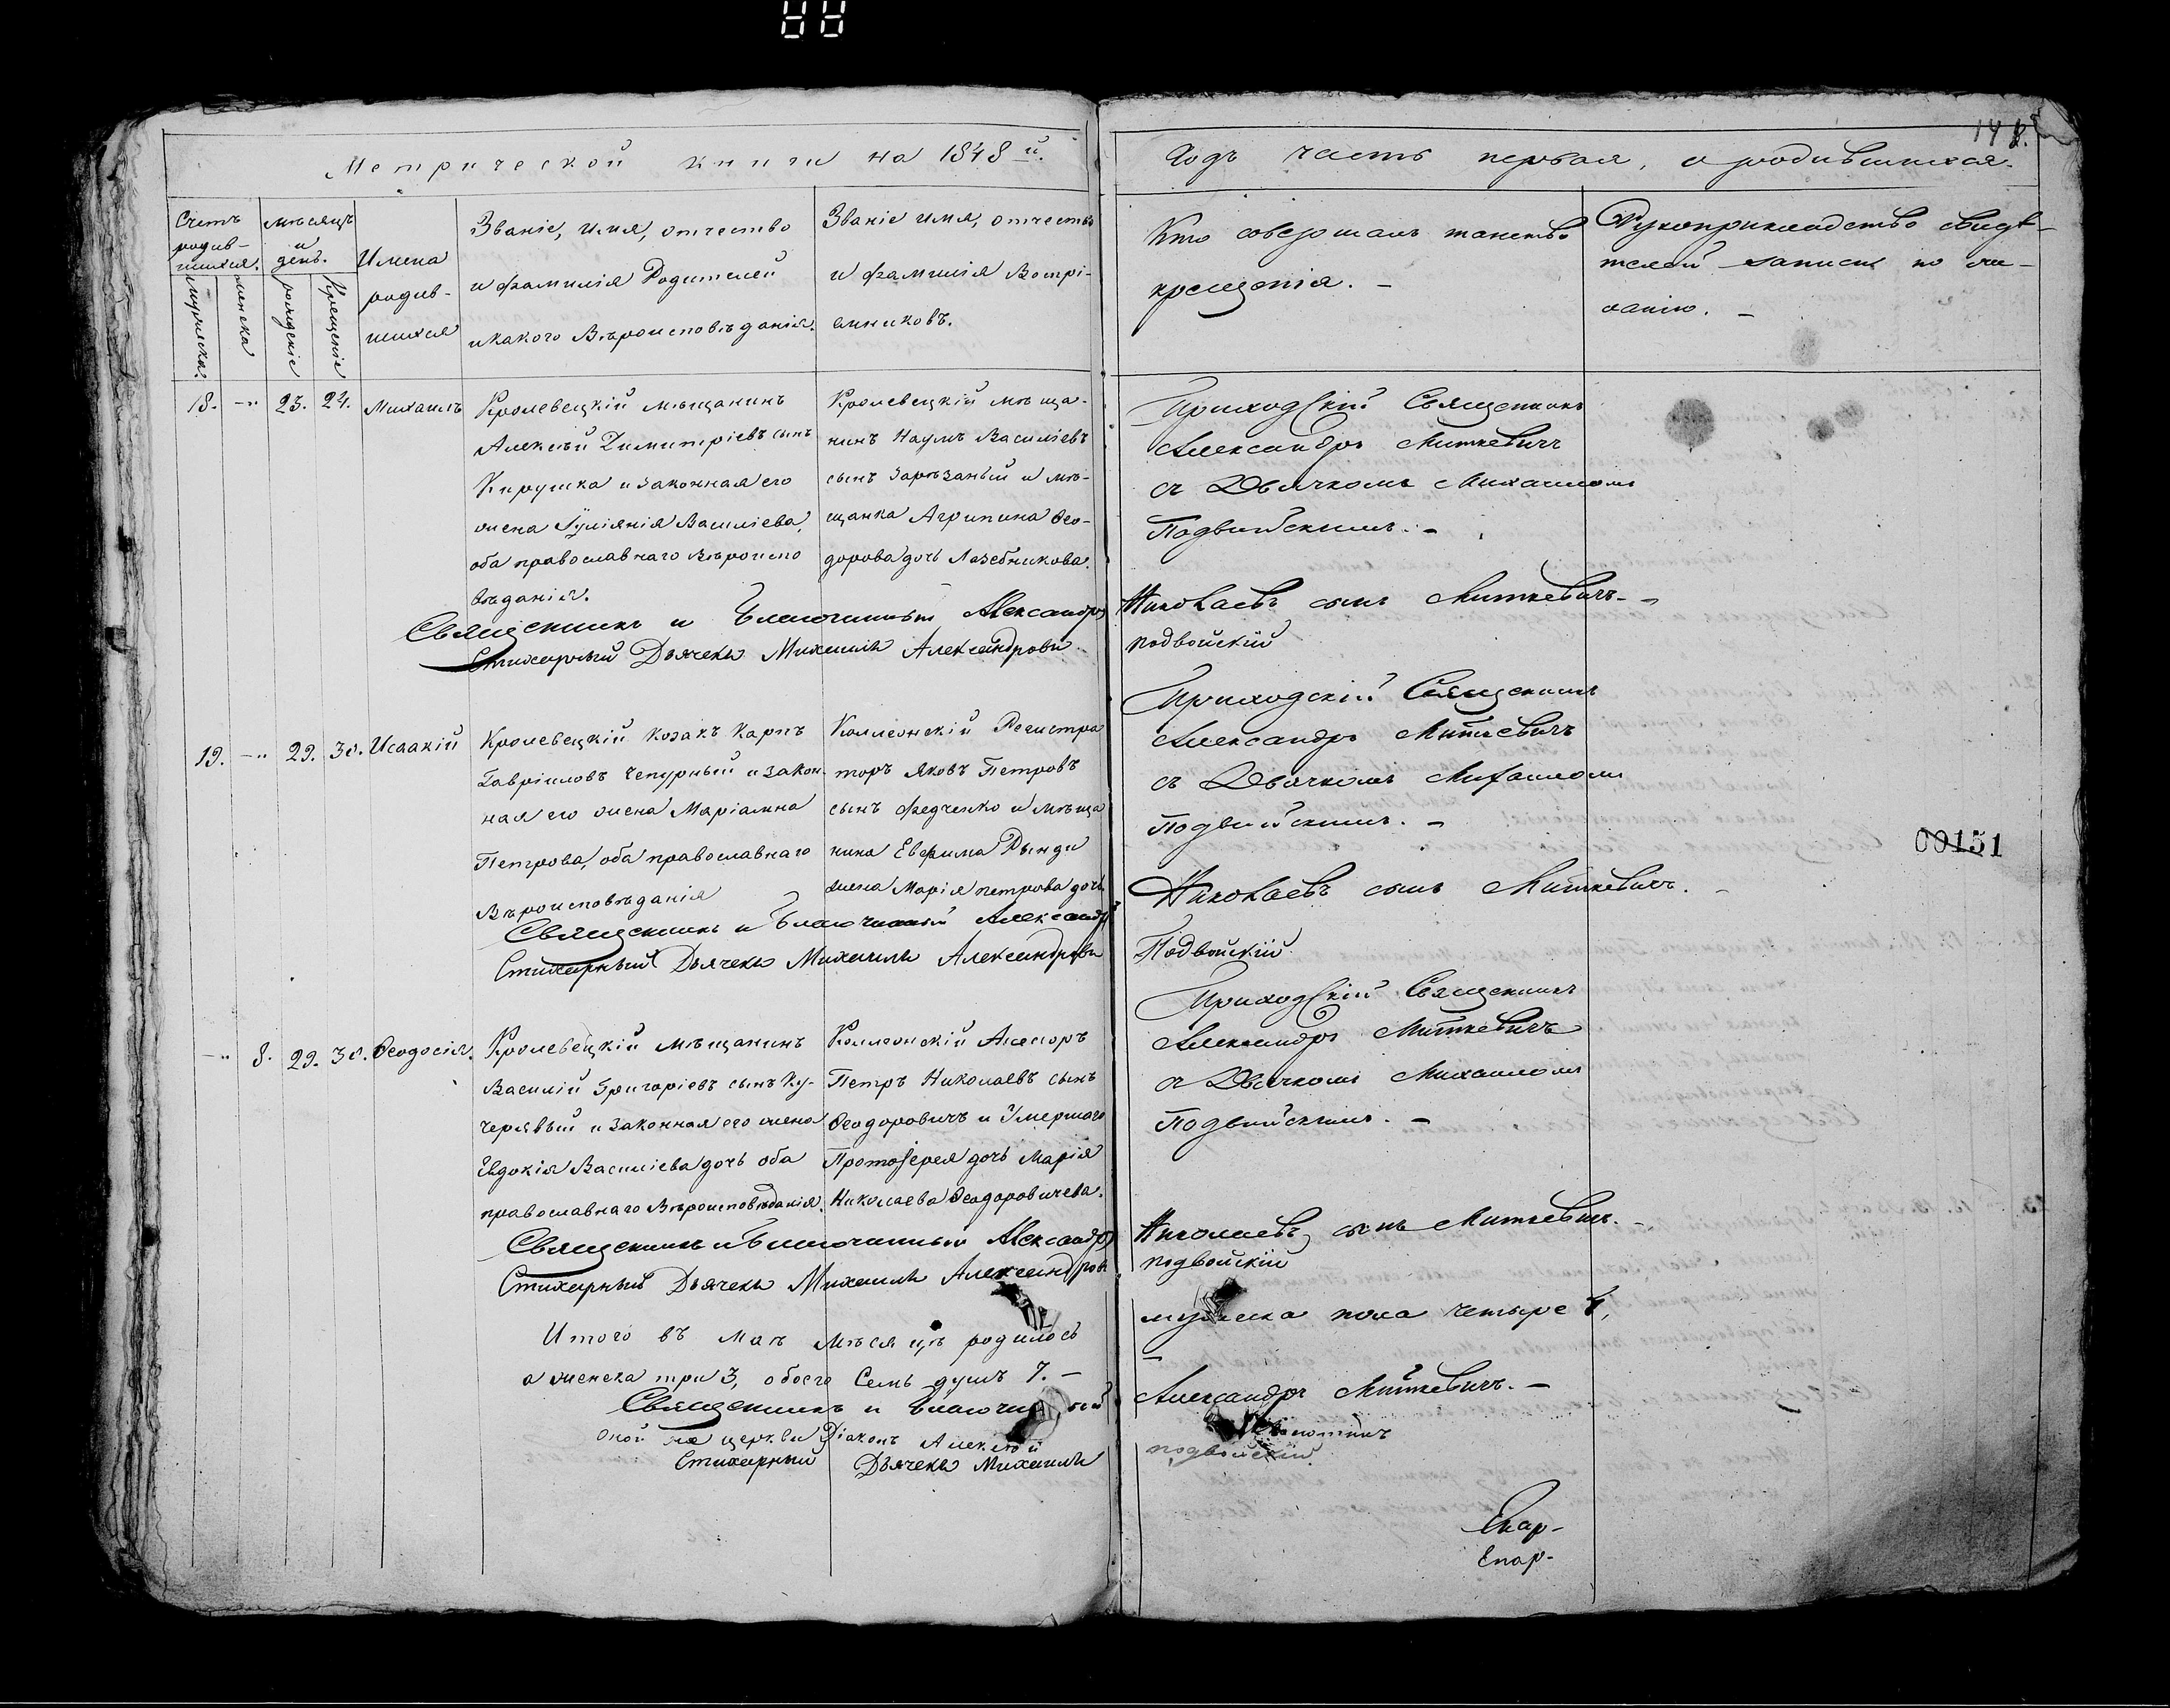 Метрической книги на 1848й.
Годъ часть первая, о родившихся.
148.
Счетъ родив-шихся.
мужеска.
женска
мѣсяцъ и день.
рожденіе
Крещеніе
Имена родив-шихся
Званіе, имя, отчество
и фамилія Родителей
и какого Вѣроисповѣданія.
Званіе имя, отчество
и фамилія Вотпрі-
емниковъ.
Кто совершалъ таинство
крещенія. -
Рукоприкладство свидѣ-
телей записи по же-
ланію. -
18. -" 23. 24. Михаилъ
Кролевецкій мѣщанинъ
Алексѣй Димитріевъ сынъ
Кирушка и законная его
жена Іуліянія Василіева,
оба православнаго Вѣроиспо
вѣданія.
Кролевецкій мѣща-
нинъ Наумъ Василіевъ
сынъ Зарѣзаный и мѣ-
щанка Агрипина Ѳео-
дорова дочь Лазебникова.
Приходскій Священникъ
Александръ Миткевичъ
съ Дьячкомъ Михаиломъ
Подвойскимъ. -
Священникъ и Благочинный Александръ Николаевъ сынъ Миткевичъ. -
Стихарный Дьячекъ Михаилъ Александровъ подвойскій
19. -" 29. 30. Исаакій
Кролевецкій козакъ Карпъ
Гавріиловъ Чепурный и закон-
ная его жена Маріамна
Петрова, оба православнаго
Вѣроисповѣданія
Коллежскій Регистра
торъ Яковъ Петровъ
сынъ Федченко и мѣща
нина Евфима Рынди
жена Марія петрова дочь.
Приходскій Священникъ
Александръ Миткевичъ
съ Дьячкомъ Михаиломъ
Подвойскимъ. -
00151
Священникъ и Благочинный Александръ Николаевъ сынъ Миткевичъ. -
Стихарный Дьячекъ Михаилъ Александровъ Подвойскій
-" 8. 29. 30. Ѳеодосія.
Кролевецкій мѣщанинъ
Василій Григоріевъ сынъ Ку-
черявый и законная его жена
Евдокія Василіева дочь оба
православнаго Вѣроисповѣданія.
Коллежскій Асесоръ
Петръ Николаевъ сынъ
Ѳеодоровичъ и Умершаго
Протоіерея дочь Марія
Николаева Ѳеодоровичева.
Приходскій Священникъ
Александръ Миткевичъ
съ Дьячкомъ Михаиломъ
Подвойскимъ. -
Священникъ и Благочинный Александръ Николаевъ сынъ Миткевичъ. -
Стихарный Дьячекъ Михаилъ Александровъ подвойскій
Итого въ маѣ мѣсяцѣ родилось мужеска пола четыре 4,
а женска три 3, обоего Семь душъ 7. -
Священникъ и Благочинный Александръ Миткевичъ. -
оной же церкви Діаконъ Алексѣй
Стихарный Дьячекъ Михаилъ подвойскій
Епар-
Епар-